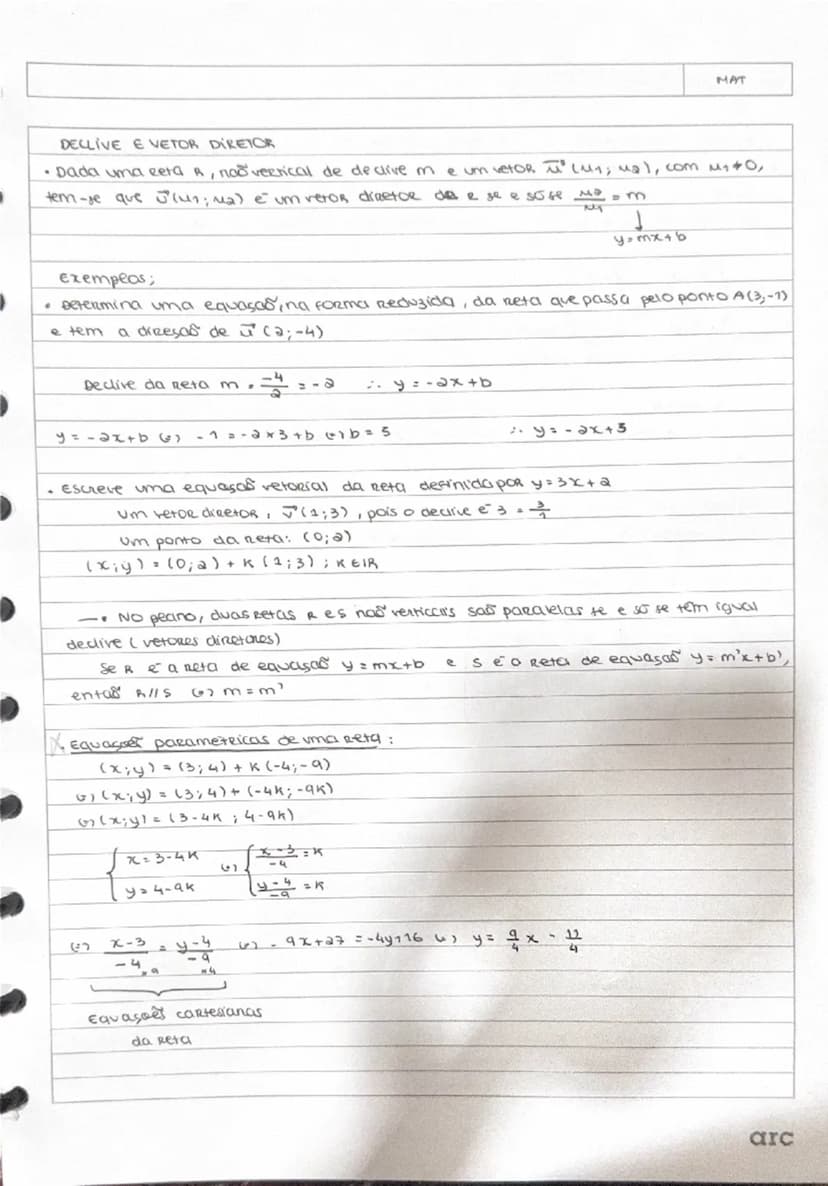 MAT
DECLIVE E VETOR DIRETOR
• Dada uma reta R, não vertical de declive m e um vetor u⃗ (u1; u2), com u1≠0,
tem-se que u⃗ (u1; u2) é um vetor diretor de R se e só se u2/u1 = m
↓
y=mx+b
Exemplos;
• Determina uma equasão, na forma reduzida, da reta que passa pelo ponto A(3;-1)
e tem a diresão de u⃗ (2;-4)
Declive da reta m = -4/2 = -2 ∴ y = -2x+b
y = -2x+b (=) -1 = -2×3+b (=) b = 5 ∴ y = -2x+5
• Escreve uma equasão vetorial da reta definida por y=3x+2
Um vetor diretor, u⃗ (1;3), pois o declive é 3 = 3/1
Um ponto da reta: (0;2)
(x;y) = (0;2) + K (1;3) ; K ∈ IR
→• No plano, duas retas R e s não verticais são paralelas se e só se têm igual
declive (vetores diretores)
Se R é a reta de equasão y=mx+b e s é a reta de equasão y=m'x+b',
então R//s (=) m=m'
X. Equações parametricas de uma reta:
(x;y) = (3;4) + K(-4;-9)
(=) (x;y) = (3;4) + (-4K;-9K)
(=) (x;y) = (3-4K ; 4-9K)
{ x=3-4K (=) { x-3/-4 = K
{ y=4-9K { y-4/-9 = K
(=) x-3/-4 = y-4/-9 (=) -9x+27 = -4y+16 (=) y = 9/4 x - 11/4
×9 ×4
Equações cartesianas
da reta
arc